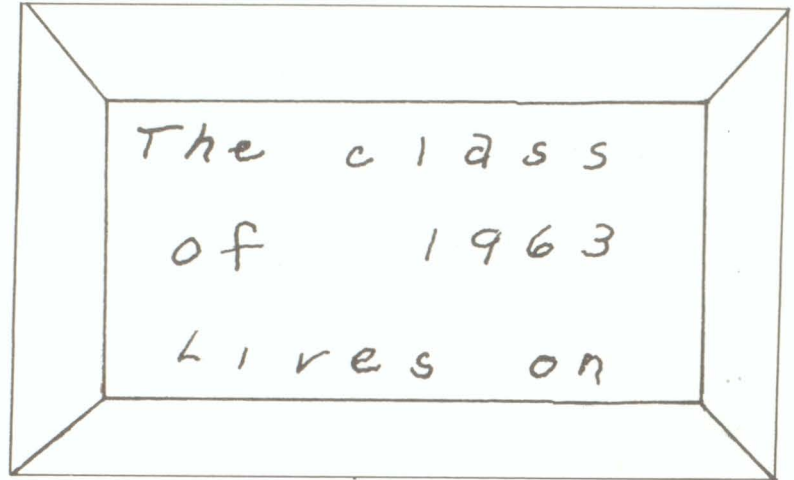 The class
of 1963
Lives on